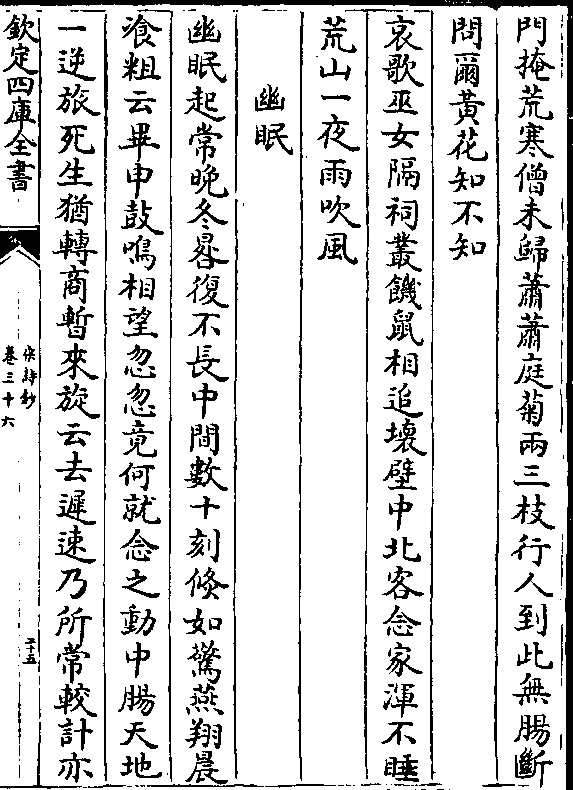 門掩荒寒僧未歸蕭蕭庭菊兩三枝行人到此無腸斷
問爾黃花知不知
哀歌巫女隔祠叢饑鼠相追壞壁中北客念家渾不睡
荒山一夜雨吹風
幽眠
幽眠起常晚冬晷復不長中間數十刻倏如驚燕翔晨
飡粗云畢申鼓鳴相望忽忽竟何就念之動中腸天地
一逆旅死生猶轉商暫來旋云去遲速乃所常較計亦
欽定四庫全書
宋詩鈔
卷三十六
二十五